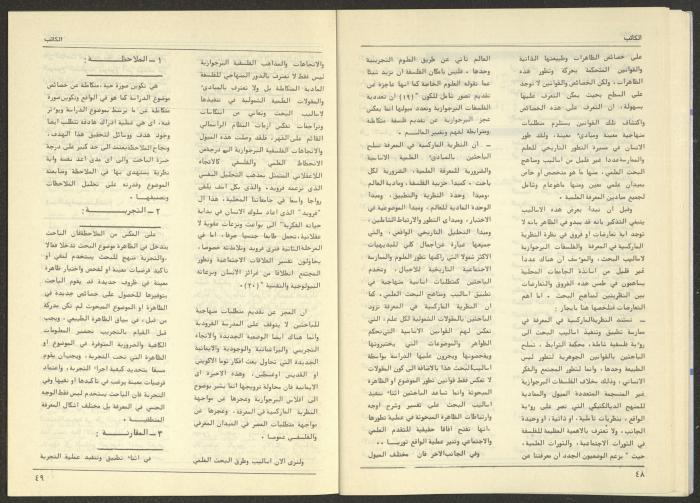 الكاتب
على خصائص الظاهرات وطبيعتها الذاتية
والقوانين المتحكمة بحركة وتطور هذه
الظاهرات ، ولكن الخصائص والقوانين لا توجد
على السطح بحيث يمكن التعرف عليها
بسهولة، ان التعرف على هذه الخصائص
واكتشاف تلك القوانين يستلزم متطلبات
منهاجية معينة ومبادىء معينة، ولقد طور
الانسان في مسيرة التطور التاريخي للعلم
والممارسة عددا غير قليل من اساليب ومناهج
البحث العلمي، منها ما هو متخصص او خاص
بميدان علمي معين ومنها ماهو عام وشامل
لجميع ميادين المعرفة العلمية .
وقبل ان نبدأ بعرض هذه الاساليب
ينبغي التذكير بانه قد يبدو في الظاهر بانه لا
توجد اية تعارضات او فروق في نظرة النظرية
الماركسية في المعرفة والفلسفات البرجوازية
لاساليب البحث، والمؤسف ان هناك عددا
غير قليل من اساتذة الجامعات المحلية
يساهمون في طمس هذه الفروق والتعارضات
بين النظريتين لمناهج البحث . اما اهم
التعارضات فنلخصها هنا بايجاز :
ـ تستند النظرية الماركسية في المعرفة في
ممارسة تطبيق وتنفيذ اساليب البحث الى
رؤية فلسفية شاملة، محكمة الترابط ، تسلح
الباحثين بالقوانين الجوهرية لتطور ليس
الطبيعة وحدها، وانما لتطور المجتمع والفكر
الانساني ، وذلك بخلاف الفلسفات البرجوازية
غير المنسجمة المتعددة الميول والمعادية
للمنهج الديالكتيكي التي تصر على رؤية
الواقع ، بنظريات تأملية، او ذاتية، او وحيدة
الجانب، ولا تعترف بالاهمية العظيمة للفلسفة
في الثورات الاجتماعية، والثورات العلمية،
حيث " يزعم الوضعيون الجدد ان معرفتنا عن
العالم تأتي عن طريق العلوم التجريبية
وحدها ، فليس بامكان الفلسفة ان تزيد شيئا
عما تقوله العلوم الخاصة كما انها عاجزة عن
تقديم تصور شامل للكون " (١٩) ان تعددية
الفلسفات البرجوازية وتعدد ميولها انما يعكس
عجز البرجوازية عن تقديم فلسفة متكاملة
ومترابطة لفهم وتغيير العالم .
ـ ان النظرية الماركسية في المعرفة تسلح
الباحثين بالمبادىء العلمية الاساسية
والضرورية للمعرفة العلمية، الضرورية لكل
باحث ، كمبدأ حزبية الفلسفة، ومادية العالم
،ومبدأ وحدة النظرية والتطبيق، ومبدأ
الوحدة المادية للعالم، ومبدأ الموضوعية في
الاختبار، ومبدأي التطور والارتباط الشاملين،
ومبدأ التحليل التاريخي الواقعي، والتي
جميعها عبارة عن اجمال كلي للبديهيات
الاكثر شمولا التي راكمها تطور العلوم والممارسة
الاجتماعية التاريخية للاجيال، وتخدم
الباحثين كمتطلبات اساسية منهاجية في
تطبيق اساليب ومناهج البحث العلمي، كما
ان النظرية الماركسية في المعرفة تزود
الباحثين بالمقولات الشمولية لكل علم، التي
تعكس لهم القوانين الاساسية التي تحكم
الظواهر والموضوعات التي يختبرونها
ويفحصونها ويجرون عليها الدراسة بواسطة
اساليب البحث هذا بالاضافة الى كون المقولات
لا تعكس فقط قوانين تطور الموضوع او الظاهرة
المبحوثة وانما تساعد الباحثين اثناء تنفيذ
اساليب البحث على تفسير وشرح اوجه
وارتباطات الظاهرة المبحوثة في عملية تطورها
،انها تفتح افاقا حقيقية للتقدم العلمي
والاجتماعي وتنير عملية الواقع ثوريا . ..
وفي الجانب الاخر فان مختلف الميول
٤٨
الكاتب
والاتجاهات والمذاهب الفلسفية البرجوازية
ليس فقط لا تعترف بالدور المنهاجي للفلسفة
المادية المتكاملة بل ولا تعترف بالمبادىء
والمقولات العلمية الشمولية في تنفيذها
لاساليب البحث وتعاني من انتكاسات
وتراجعات تعكس ازمات النظام الرأسمالي
القائم على القهر، فلقد وصلت هذه الميول
والاتجاهات الفلسفية البرجوازية الى درجة من
الانحطاط العلمي والفلسفي كالاتجاه
اللاعقلاني المتمثل بمذهب التحليل النفسي
الذي تزعمه فرويد، والذي بكل اسف يلقى
رواجا واسعا في جامعاتنا المحلية، هذا ال
"فرويد" الذي اعاد سلوك الانسان في بداية
حياته الفكرية " الى بواعث ونزعات عفوية لا
عقلانية، تحمل طابعا جنسيا صرفا، اما في
المرحلة الثانية فنرى فرويد وتلامذته خصوصا ،
يحاولون تفسير العلاقات الاجتماعية وتطور
المجتمع انطلاقا من غرائز الانسان ونزعاته
البيولوجية والنفسية " (٢٠) .
ان العجز عن تقديم متطلبات منهاجية
للباحثين لا يتوقف على المدرسة الفرويدية
وانما هناك ايضا الوضعية الجديدة والاتجاه
التجريبي والبراغماتية والوجودية والايمانية
الجديدة التي تحاول بعث افكار توما الاكويني
او القديس اوغسطين، وهذه الاخيرة اي
الايمانية فان محاولة ترويجها انما يشير بوضوح
الى افلاس البرجوازية وعجزها عن مواجهة
النظرية الماركسية في المعرفة، وعجزها عن
مواجهة متطلبات العصر في الميدان المعرفي
والفلسفي عموما .
ولنرى الان اساليب وطرق البحث العلمي
١ ـ الملاحظة :
هي تكوين صورة حية، متكاملة عن خصائص
موضوع الدراسة كما هو في الواقع وتكوين صورة
متكاملة عن ما يرتبط بموضوع الدراسة ويؤثر
فيه، اي هي عملية ادراك هادفة تتطلب ايضا
وجود هدف ووسائل لتحقيق هذا الهدف،
ونجاح الملاحظة يعتمد الى حد كبير على درجة
خبرة الباحث والى اي مدى اعد نفسه واية
نظرية يستهدي بها في الملاحظة ومتابعة
الموضوع وقدرته على تحليل الملاحظات
وتصنيفها .
٢ ـ التجربة :
على العكس من الملاحظة فان الباحث
يتدخل في الظاهرة موضوع البحث تدخلا فعالا
،والتجربة منهج للبحث يستخدم لنفي او
تأكيد فرضيات معينة او لفحص واختبار ظاهرة
معينة في ظروف جديدة قد يقوم الباحث
بتوفيرها للحصول على خصائص جديدة في
الظاهرة او الموضوع المبحوث لم تكن مدركة
من قبل، في سياق الظاهرة الطبيعي، ويجب
قبل القيام بالتجريب تحضير المعلومات
الكافية والضرورية المتوفرة في الموضوع او
الظاهرة التي تحت التجربة ، ويجب ان يقوم
مسبقا بتحديد كيفية اجراء التجربة، واعتماد
فرضيات معينة يرغب في تأكيدها او نفيها وفي
التجربة فان الباحث يستخدم ليس فقط الوجه
الحسي في المعرفة بل مختلف اشكال المعرفة
المنطقية .
٣ ـ المقارنة :
في اثناء تطبيق وتنفيذ عملية التجربة
٤٩